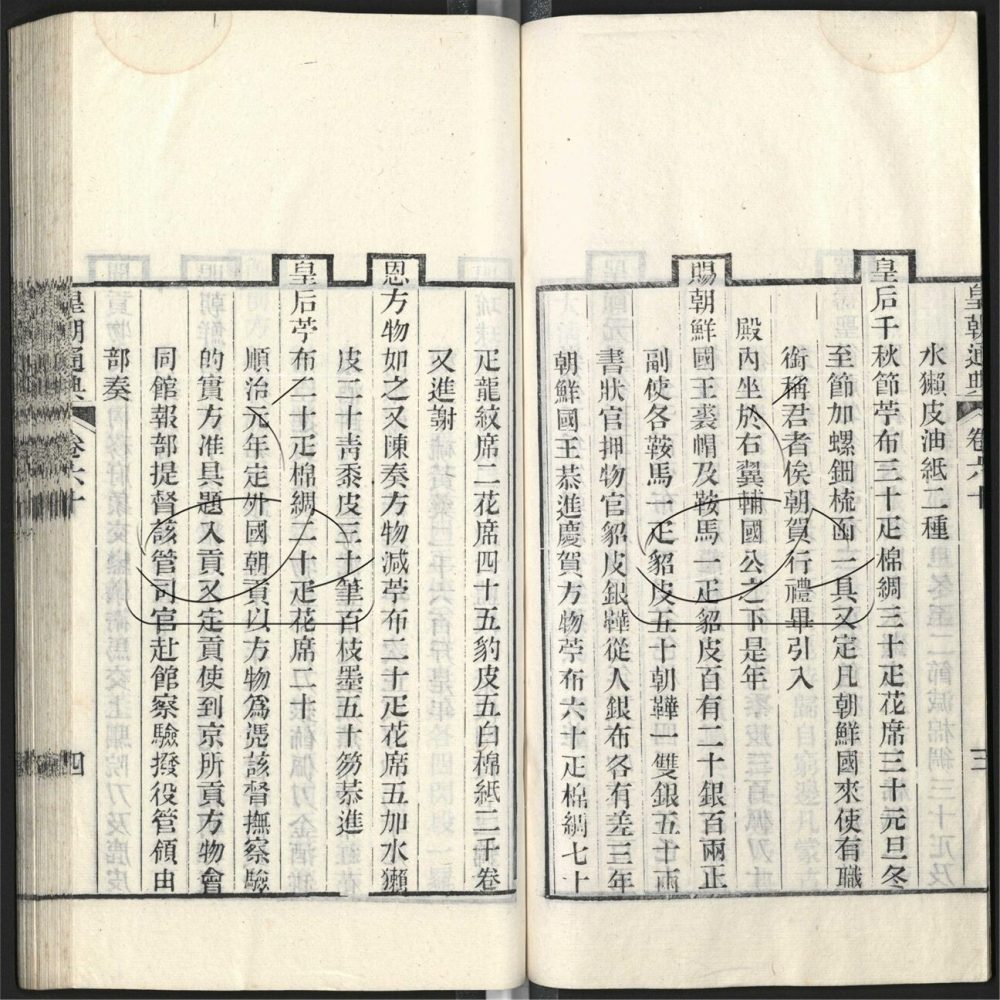 皇朝通典
卷六十
三
水獺皮油紙二種
皇后千秋節苧布三十疋棉綢三十疋花席三十元旦冬
至節加螺鈿梳函二具又定凡朝鮮國來使有職
銜稱君者俟朝賀行禮畢引入
殿內坐於右翼輔國公之下是年
賜朝鮮國王裘帽及鞍馬一疋貂皮百有二十銀百兩正
副使各鞍馬一疋貂皮五十朝鞾一雙銀五十兩
書狀官押物官貂皮銀鞾從人銀布各有差三年
朝鮮國王恭進慶賀方物苧布六十疋棉綢七十
疋龍紋席二花席四十五豹皮五白棉紙二千卷
又進謝
恩方物如之又陳奏方物減苧布二十疋花席五加水獺
皮二十靑黍皮三十筆百枝墨五十笏恭進
皇后苧布二十疋棉綢二十疋花席二十
順治元年定外國朝貢以方物爲憑該督撫察驗
的實方准具題入貢又定貢使到京所貢方物會
同館報部提督該管司官赴館察驗撥役管領由
部奏
皇朝通典
卷六十
四